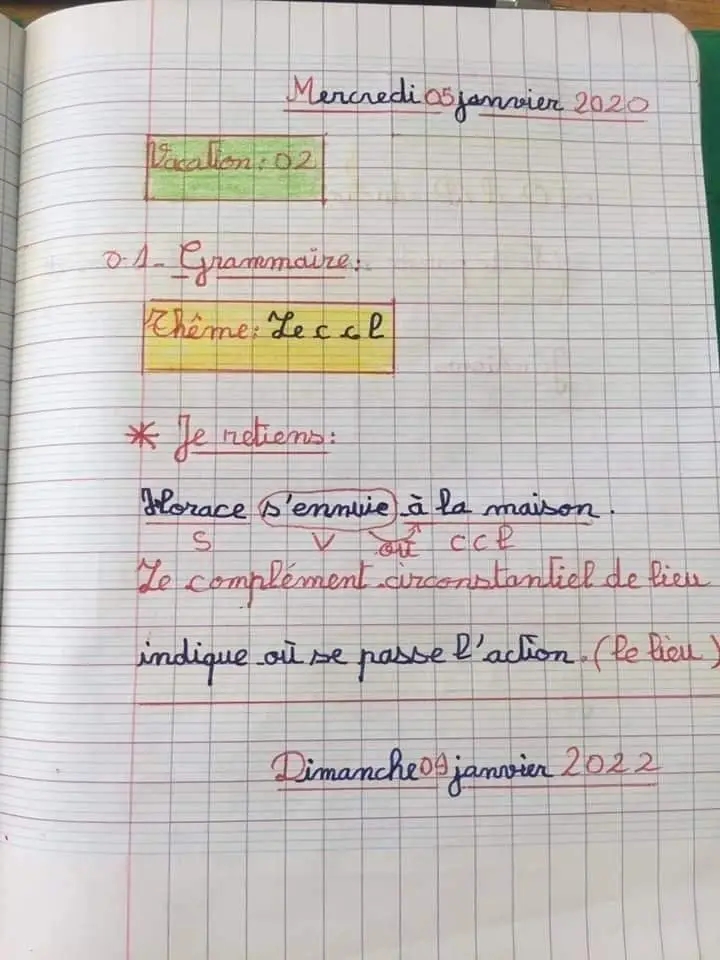 Mercredi 05 janvier 2020
Vacation : 02
0.1- Grammaire :
Thème : Le c c l
* Je retiens :
Horace s'ennuie à la maison.
S V où c c l
Le complément circonstantiel de lieu
indique où se passe l'action. (le lieu)
Dimanche 09 janvier 2022